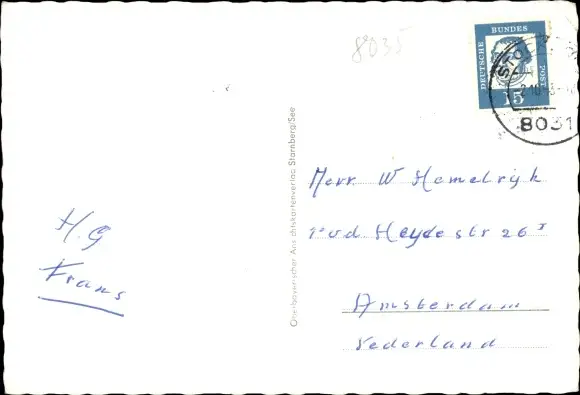 8035
DEUTSCHE BUNDES POST
15
8031
Oberbayerischer Ansichtskartenverlag Starnberg/See
Herr W Hamelryk
v.d. Heyde str 26 I
Amsterdam
Nederland
H.G
Frans